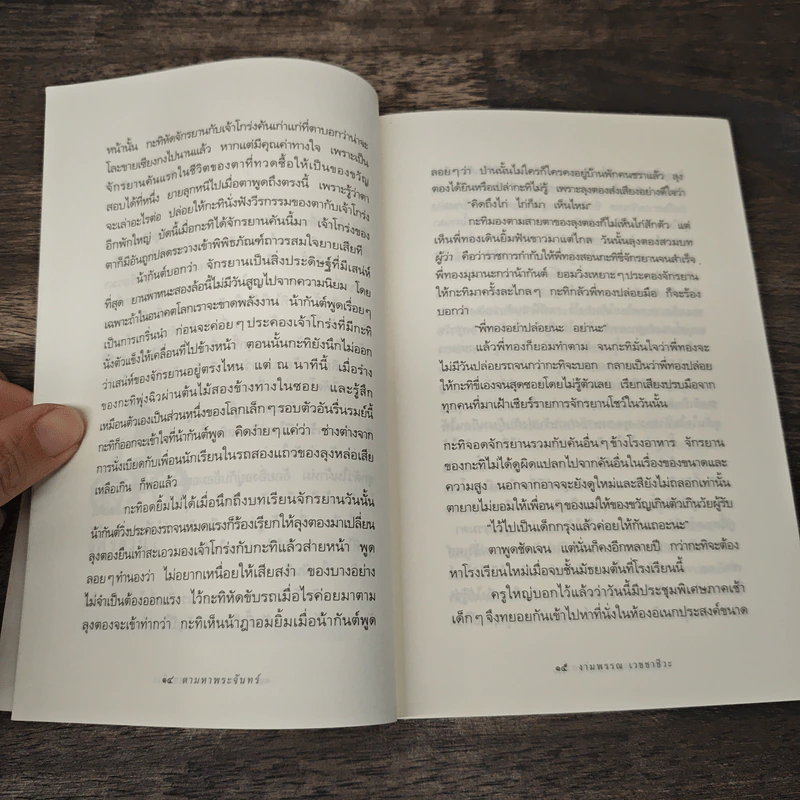 หน้านั้น กะทิหัดจักรยานกับเจ้าโกร่งคันเก่าแก่ที่ตาบอกว่าน่าจะ
โละขายเซียงกงไปนานแล้ว หากแต่มีคุณค่าทางใจ เพราะเป็น
จักรยานคันแรกในชีวิตของตาที่ทวดซื้อให้เป็นของขวัญ
สอบได้ที่หนึ่ง ยายลุกหนีไปเมื่อตาพูดถึงตรงนี้ เพราะรู้ว่าตา
จะเล่าอะไรต่อ ปล่อยให้กะทินั่งฟังวีรกรรมของตากับเจ้าโกร่ง
อีกพักใหญ่ บัดนี้เมื่อกะทิได้จักรยานคันนี้มา เจ้าโกร่งของ
ตาก็มีอันถูกปลดระวางเข้าพิพิธภัณฑ์ถาวรสมใจยายเสียที
น้ากันต์บอกว่า จักรยานเป็นสิ่งประดิษฐ์ที่มีเสน่ห์
ที่สุด ยานพาหนะสองล้อนี้ไม่มีวันสูญไปจากความนิยม โดย
เฉพาะถ้าในอนาคตโลกเราจะขาดพลังงาน น้ากันต์พูดเรื่อยๆ
เป็นการเกริ่นนำ ก่อนจะค่อยๆ ประคองเจ้าโกร่งที่มีกะทิ
นั่งตัวแข็งให้เคลื่อนที่ไปข้างหน้า ตอนนั้นกะทิยังนึกไม่ออก
ว่าเสน่ห์ของจักรยานอยู่ตรงไหน แต่ ณ นาทีนี้ เมื่อร่าง
ของกะทิพุ่งฉิวผ่านต้นไม้สองข้างทางในซอย และรู้สึก
เหมือนตัวเองเป็นส่วนหนึ่งของโลกเล็กๆ รอบตัวอันรื่นรมย์นี้
กะทิก็ออกจะเข้าใจที่น้ากันต์พูด คิดง่ายๆ แค่ว่า ช่างต่างจาก
การนั่งเบียดกับเพื่อนนักเรียนในรถสองแถวของลุงหล่อเสีย
เหลือเกิน ก็พอแล้ว
กะทิอดยิ้มไม่ได้เมื่อนึกถึงบทเรียนจักรยานวันนั้น
น้ากันต์วิ่งประคองรถจนหมดแรงก็ร้องเรียกให้ลุงตองมาเปลี่ยน
ลุงตองยืนเท้าสะเอวมองเจ้าโกร่งกับกะทิแล้วส่ายหน้า พูด
ลอยๆ ทำนองว่า ไม่อยากเหนื่อยให้เสียสง่า ของบางอย่าง
ไม่จำเป็นต้องออกแรง ไว้กะทิหัดขับรถเมื่อไรค่อยมาตาม
ลุงตองจะเข้าท่ากว่า กะทิเห็นน้าฎาอมยิ้มเมื่อน้ากันต์พูด
๑๔ ตามหาพระจันทร์
ลอยๆ ว่า ป่านนั้นไม่ใครก็ใครคงอยู่บ้านพักคนชราแล้ว ลุง
ตองได้ยินหรือเปล่ากะทิไม่รู้ เพราะลุงตองส่งเสียงอย่างดีใจว่า
"คิดถึงไก่ ไก่ก็มา เห็นไหม"
กะทิมองตามสายตาของลุงตองก็ไม่เห็นไก่สักตัว แต่
เห็นพี่ทองเดินยิ้มฟันขาวมาแต่ไกล วันนั้นลุงตองสวมบท
ผู้ว่า คือว่าราชการกำกับให้พี่ทองสอนกะทิขี่จักรยานจนสำเร็จ
พี่ทองมุมานะกว่าน้ากันต์ ยอมวิ่งเหยาะๆ ประคองจักรยาน
ให้กะทิมาครั้งละไกลๆ กะทิกลัวพี่ทองปล่อยมือ ก็จะร้อง
บอกว่า
"พี่ทองอย่าปล่อยนะ อย่านะ"
แล้วพี่ทองก็ยอมทำตาม จนกะทิมั่นใจว่าพี่ทองจะ
ไม่มีวันปล่อยรถจนกว่ากะทิจะบอก กลายเป็นว่าพี่ทองปล่อย
ให้กะทิขี่เองจนสุดซอยโดยไม่รู้ตัวเลย เรียกเสียงปรบมือจาก
ทุกคนที่มาเฝ้าเชียร์รายการจักรยานโชว์ในวันนั้น
กะทิจอดจักรยานรวมกับคันอื่นๆ ข้างโรงอาหาร จักรยาน
ของกะทิไม่ได้ดูผิดแผกไปจากคันอื่นในเรื่องของขนาดและ
ความสูง นอกจากอาจจะยังดูใหม่และสียังไม่ถลอกเท่านั้น
ตายายไม่ยอมให้เพื่อนๆ ของแม่ให้ของขวัญเกินตัวเกินวัยผู้รับ
"ไว้ไปเป็นเด็กกรุงแล้วค่อยให้กันเถอะนะ"
ตาพูดชัดเจน แต่นั่นก็คงอีกหลายปี กว่ากะทิจะต้อง
หาโรงเรียนใหม่เมื่อจบชั้นมัธยมต้นที่โรงเรียนนี้
ครูใหญ่บอกไว้แล้วว่าวันนี้มีประชุมพิเศษภาคเช้า
เด็กๆ จึงทยอยกันเข้าไปหาที่นั่งในห้องอเนกประสงค์ขนาด
๑๕ งามพรรณ เวชชาชีวะ